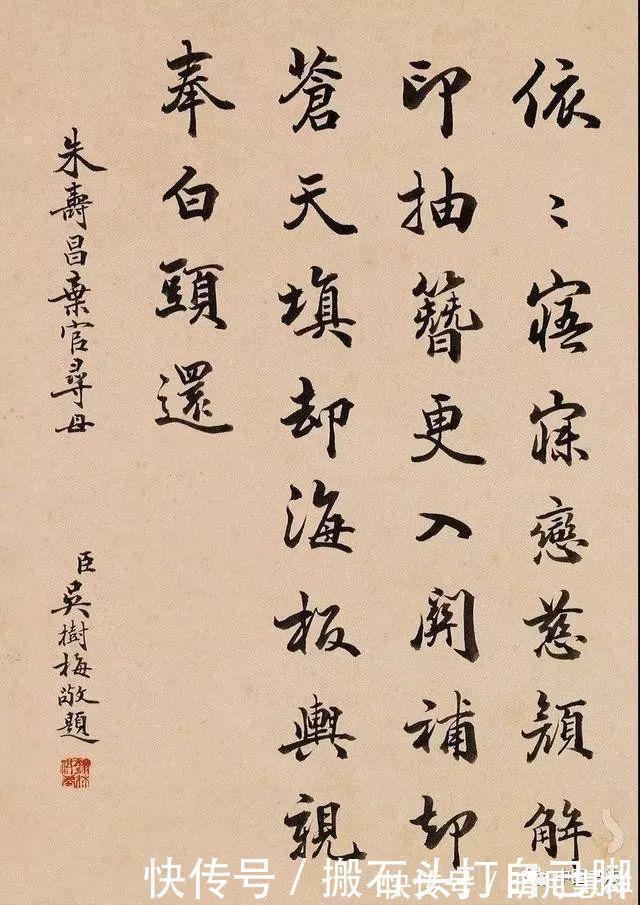 依〻寤寐戀慈顔解
印抽簪更入關補却
蒼天填却海板輿親
奉白頭還
朱壽昌棄官尋母
臣吳樹梅敬題
快传号 / 搬石头打自己脚